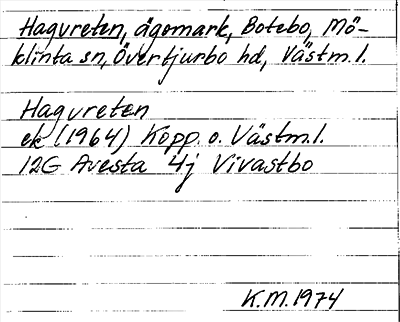 Hagvreten, ägomark, Botebo, Mö-
klinta sn, Övertjurbo hd, Västm.l.
Hagvreten
ek (1964) Kopp. o. Västm.l.
12G Avesta 4j Vivastbo
K.M. 1974